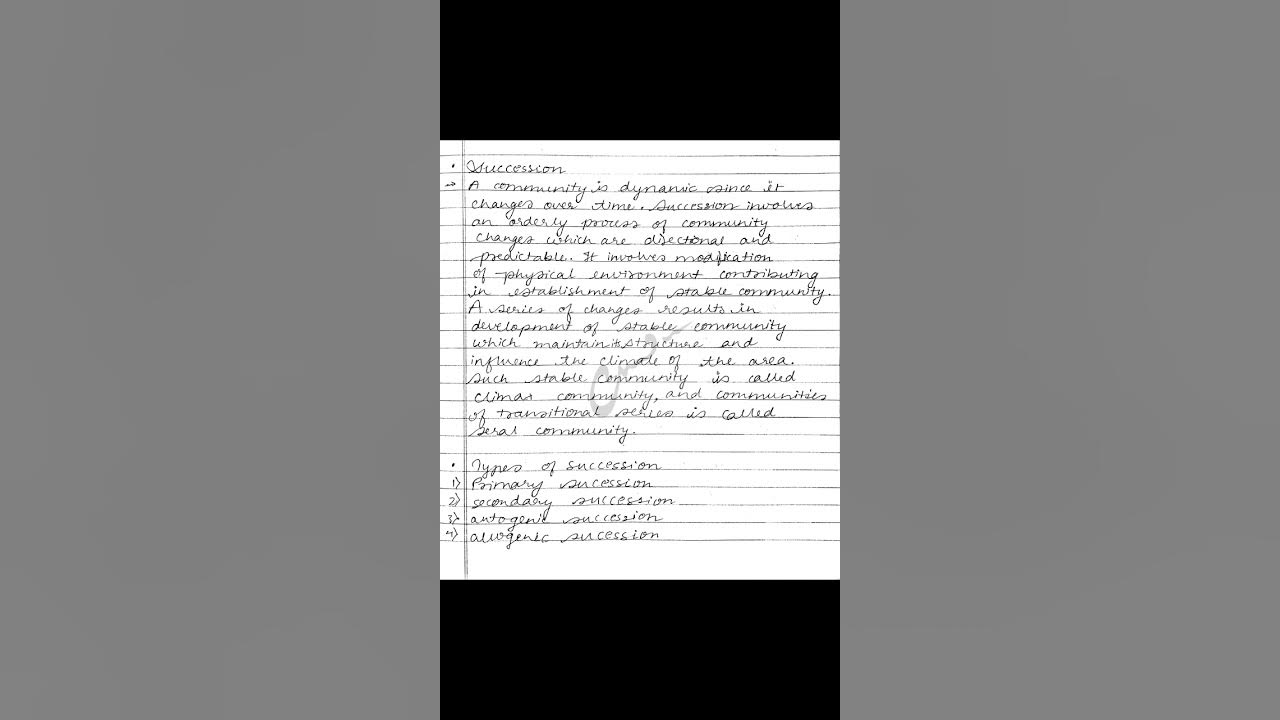 • Succession
→ A community is dynamic since it
changes over time. Succession involves
an orderly process of community
changes which are directional and
predictable. It involves modification
of physical environment contributing
in establishment of stable community.
A series of changes results in
development of stable community
which maintain it structure and
influence the climate of the area.
Such stable community is called
climax community, and communities
of transitional series is called
seral community.
• Types of succession
1) Primary sucession
2) secondary succession
3) autogenic succession
4) allogenic sucession